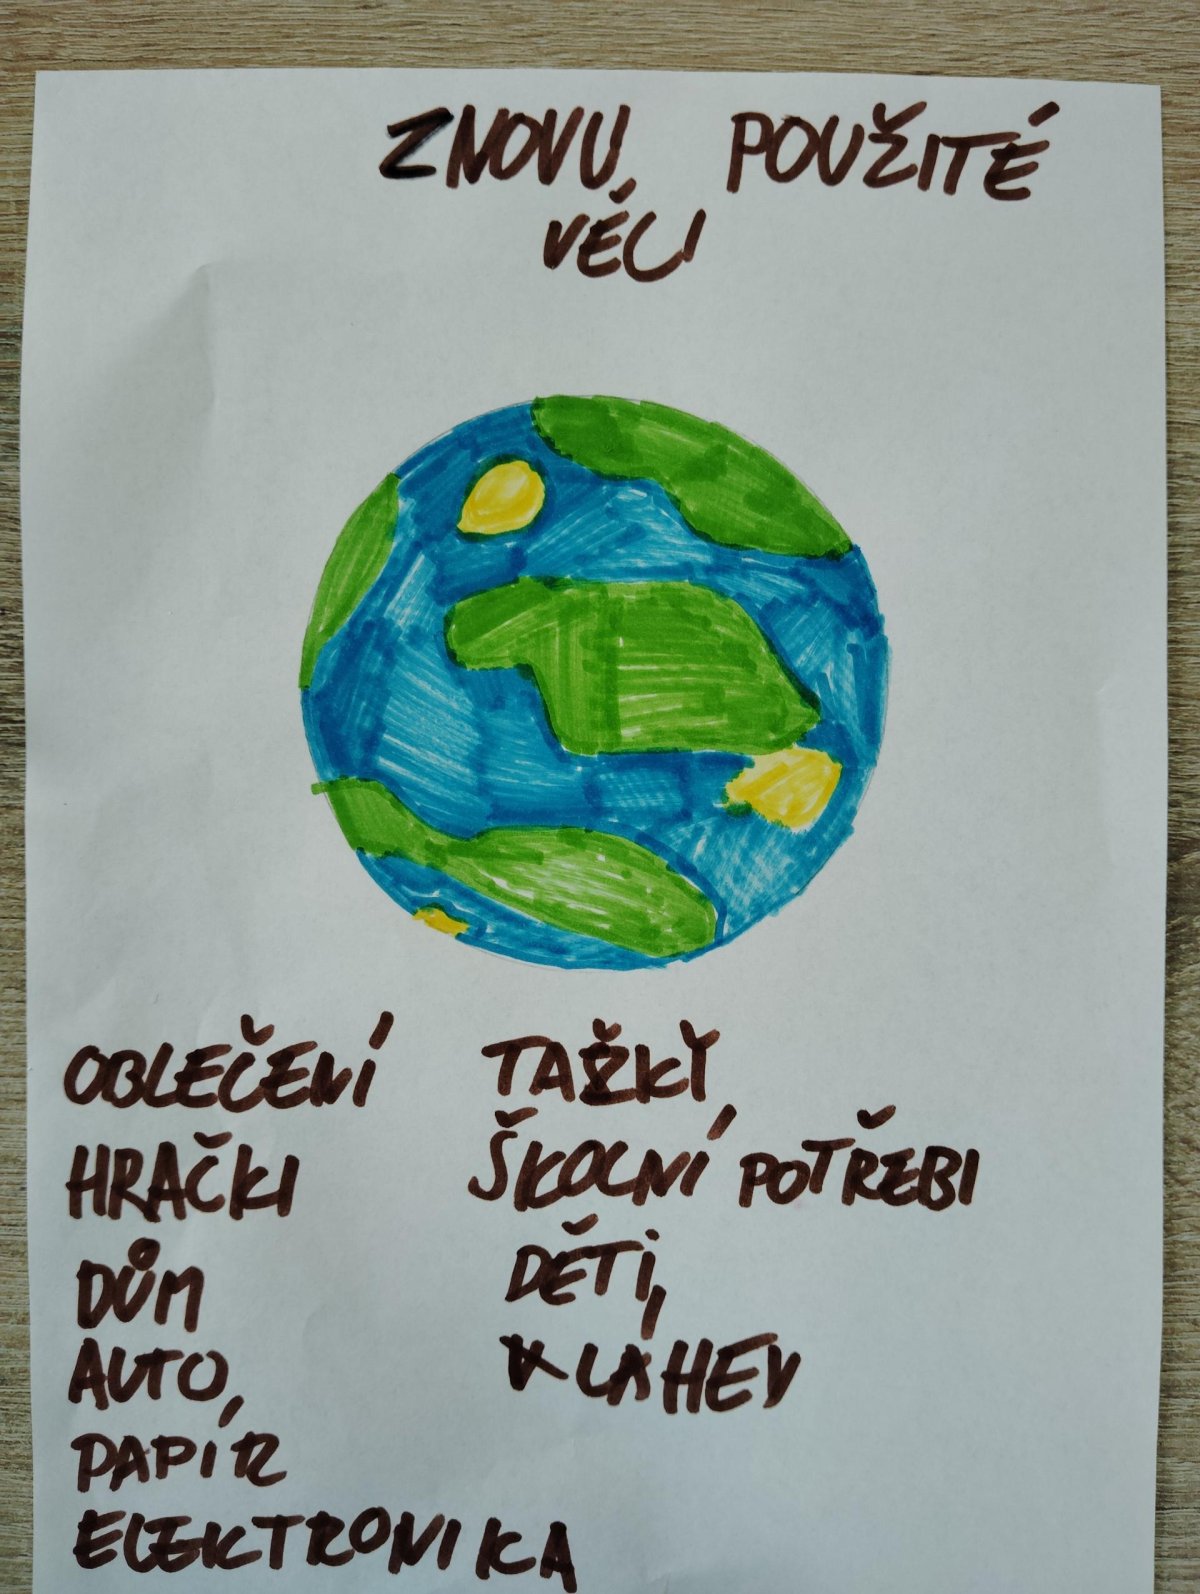 ZNOVU POUŽITÉ
VÉCI
OBLEČENÍ TAŽKY
HRAČKI ŠKOLNÍ POTŘEBI
DŮM DĚTI
AUTO KLÁHEV
PAPÍR
ELEKTRONIKA